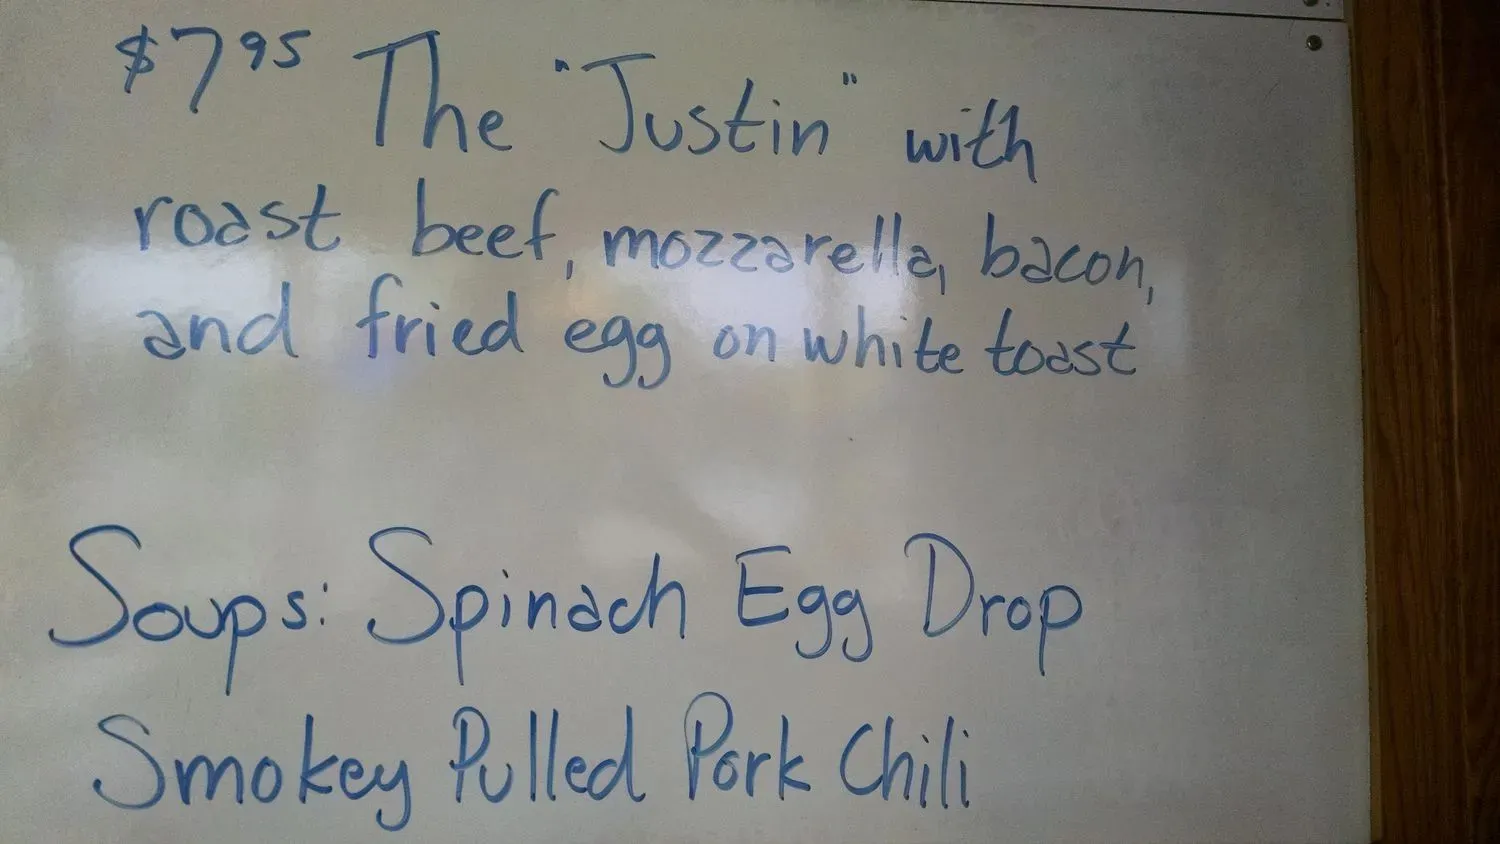 $7 95 The "Justin" with
roast beef, mozzarella, bacon,
and fried egg on white toast
Soups: Spinach Egg Drop
Smokey Pulled Pork Chili